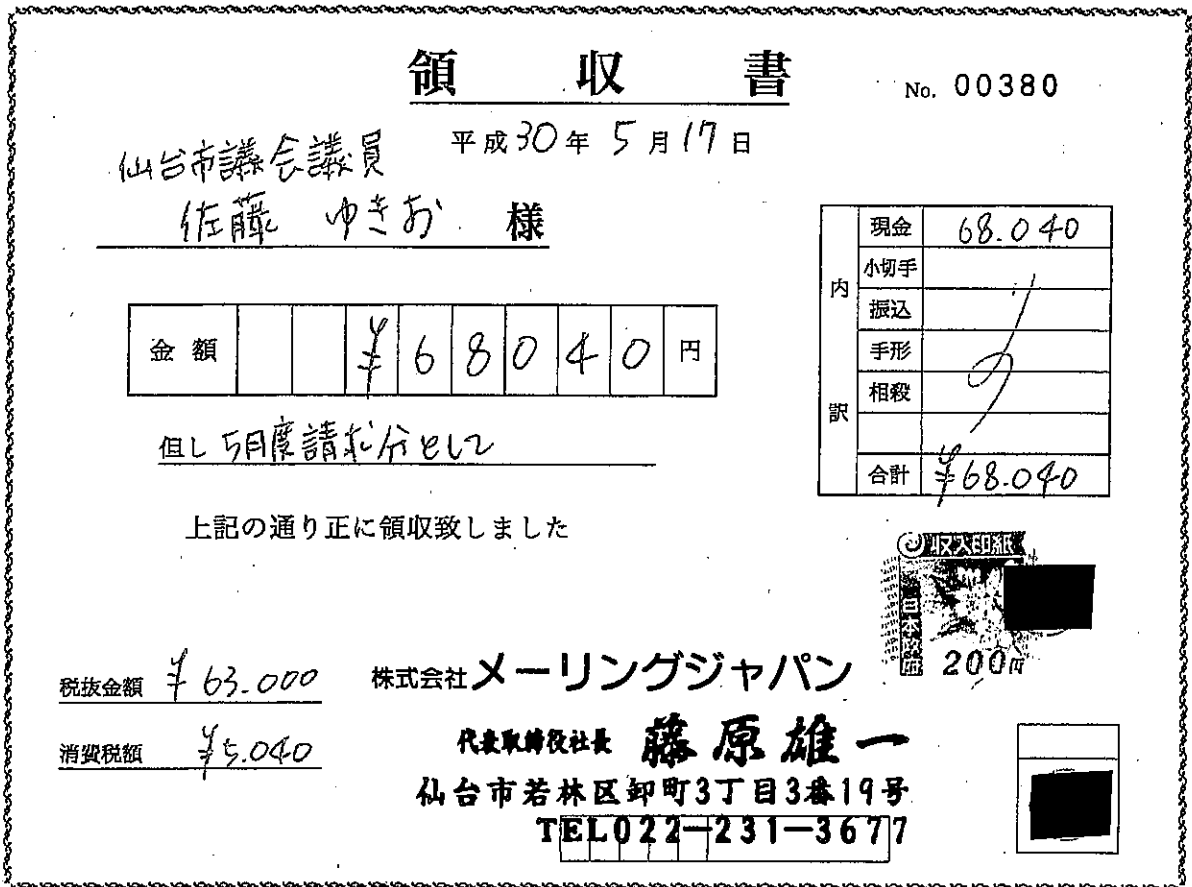 領収書
No. 00380
平成30年5月17日
仙台市議会議員
佐藤 ゆきお 様
内訳
現金 68.040
小切手
振込
手形
相殺
合計 ¥68.040
金額 ¥68040円
但し 5月度請求分として
上記の通り正に領収致しました
収入印紙
200円
税抜金額 ¥63.000
消費税額 ¥5.040
株式会社メーリングジャパン
代表取締役社長 藤原雄一
仙台市若林区卸町3丁目3番19号
TEL022-231-3677